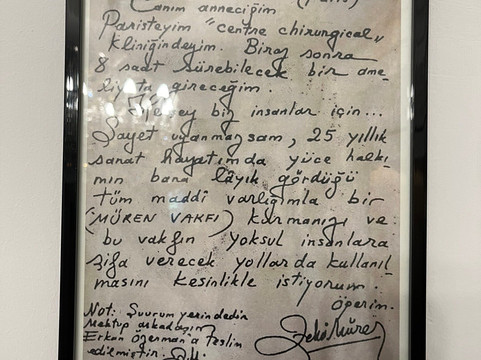 Canım anneciğim (Paris)
Paristeyim "centre chirurgical"
kliniğindeyim. Biraz sonra
8 saat sürebilecek bir ame-
liyata gireceğim.
Herşey biz insanlar için...
Şayet uyanmazsam, 25 yıllık
sanat hayatımda yüce halkı-
mın bana lâyık gördüğü
tüm maddî varlığımla bir
(MÜREN VAKFI) kurmanızı ve
bu vakfın yoksul insanlara
şifa verecek yollarda kullanıl-
masını kesinlikle istiyorum.
Öperim.
Zeki Müren
Not: Şuurum yerindedir
Mektup arkadaşım
Erkan Özerman'a teslim
edilmiştir. Z.M.